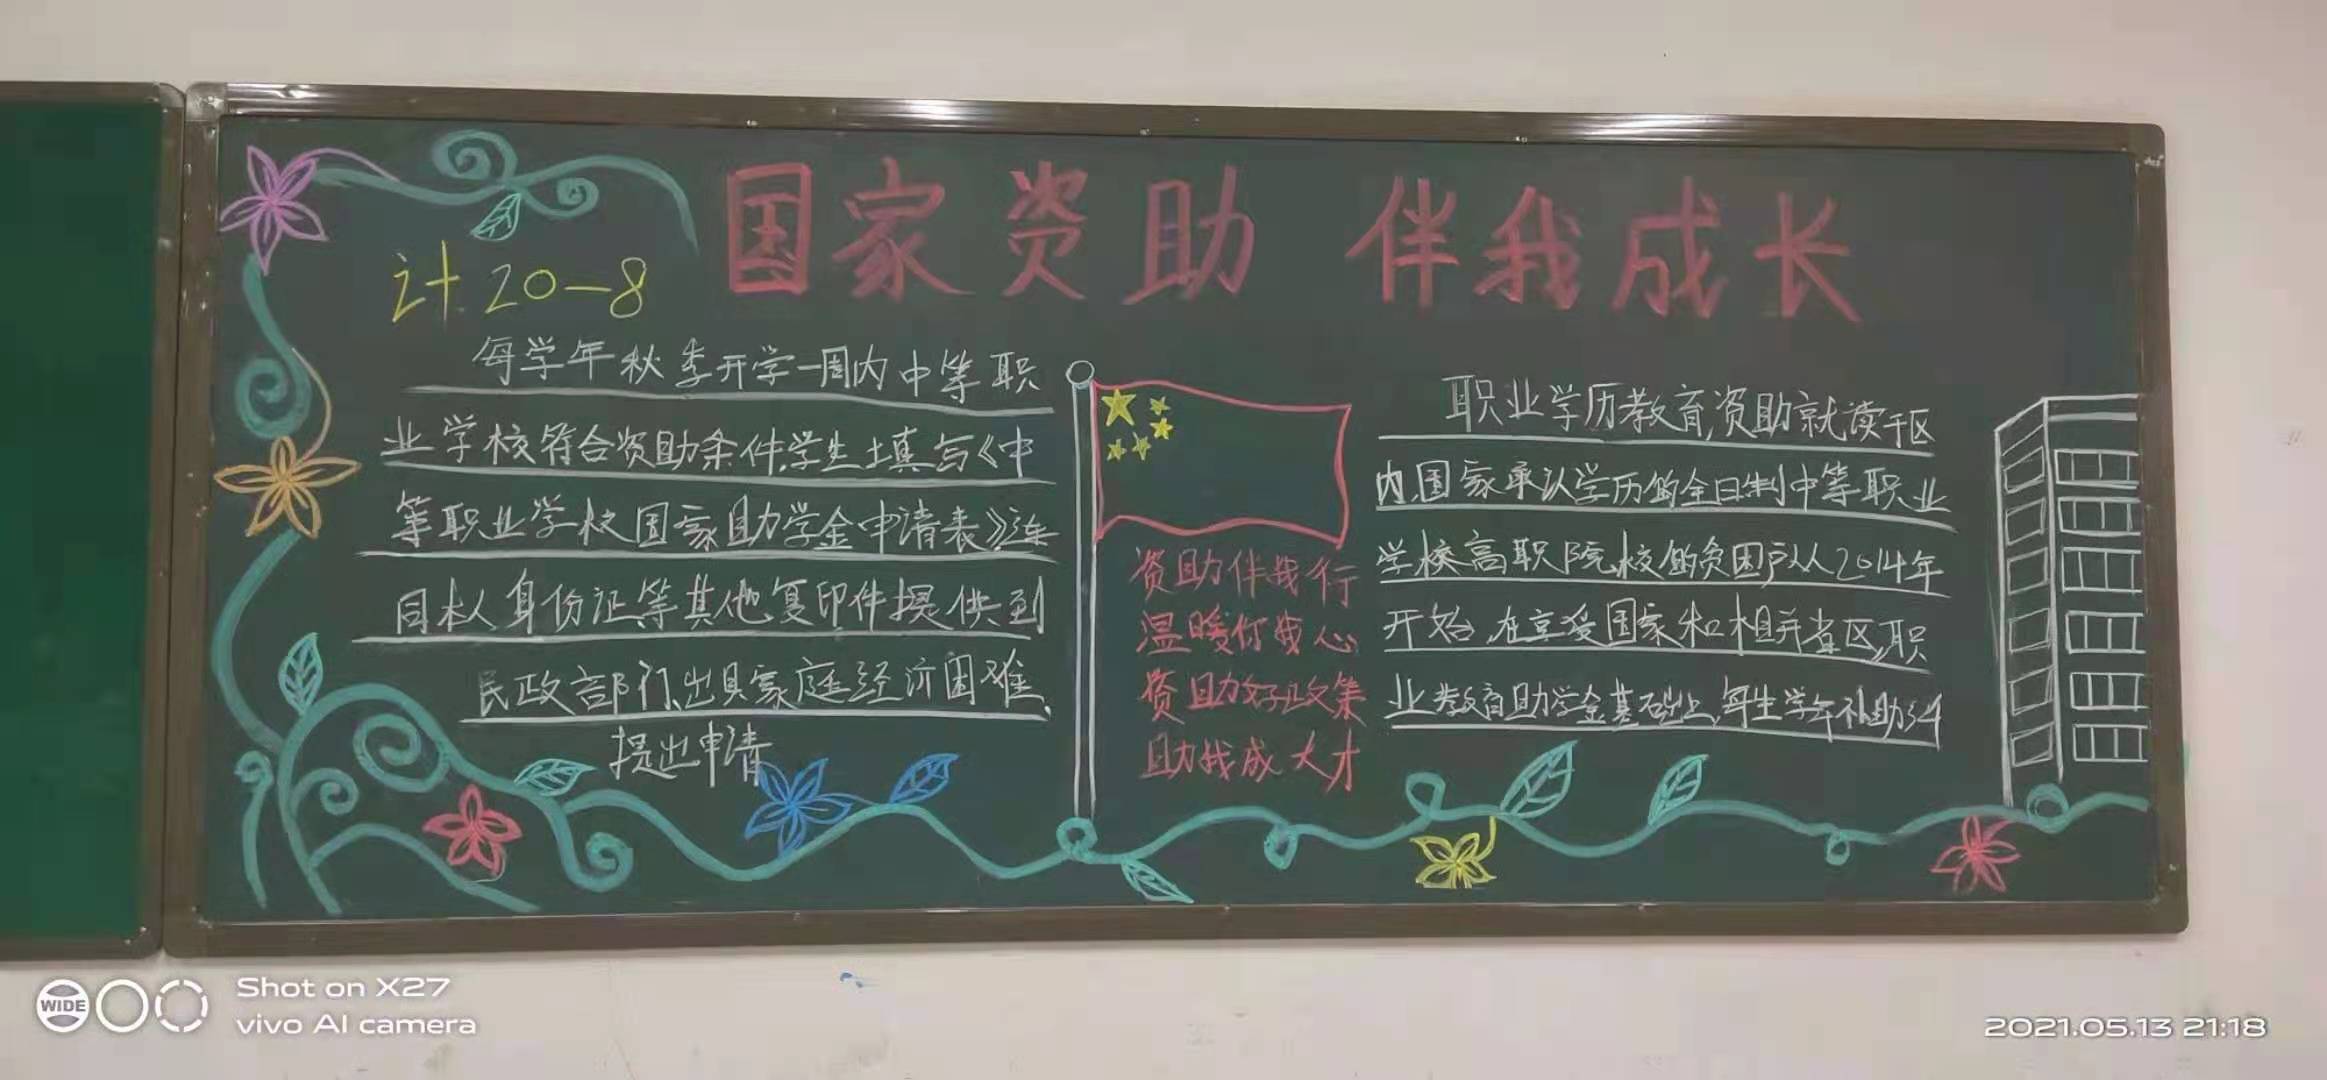 国家资助 伴我成长
计20-8
每学年秋季开学一周内中等职
业学校符合资助条件,学生填写《中
等职业学校国家助学金申请表》连
同本人身份证、等其他复印件提供到
民政部门、出具家庭经济困难、
提出申请
资助伴我行
温暖你我心
资助好政策
助我成大才
职业学历教育,资助就读于区
内国家承认学历的全日制中等职业
学校高职院校的贫困户从2014年
开始,在享受国家和 省区,职
业教育助学金基础上,每生学年补助
Shot on X27
vivo AI camera
WIDE
2021.05.13 21:18